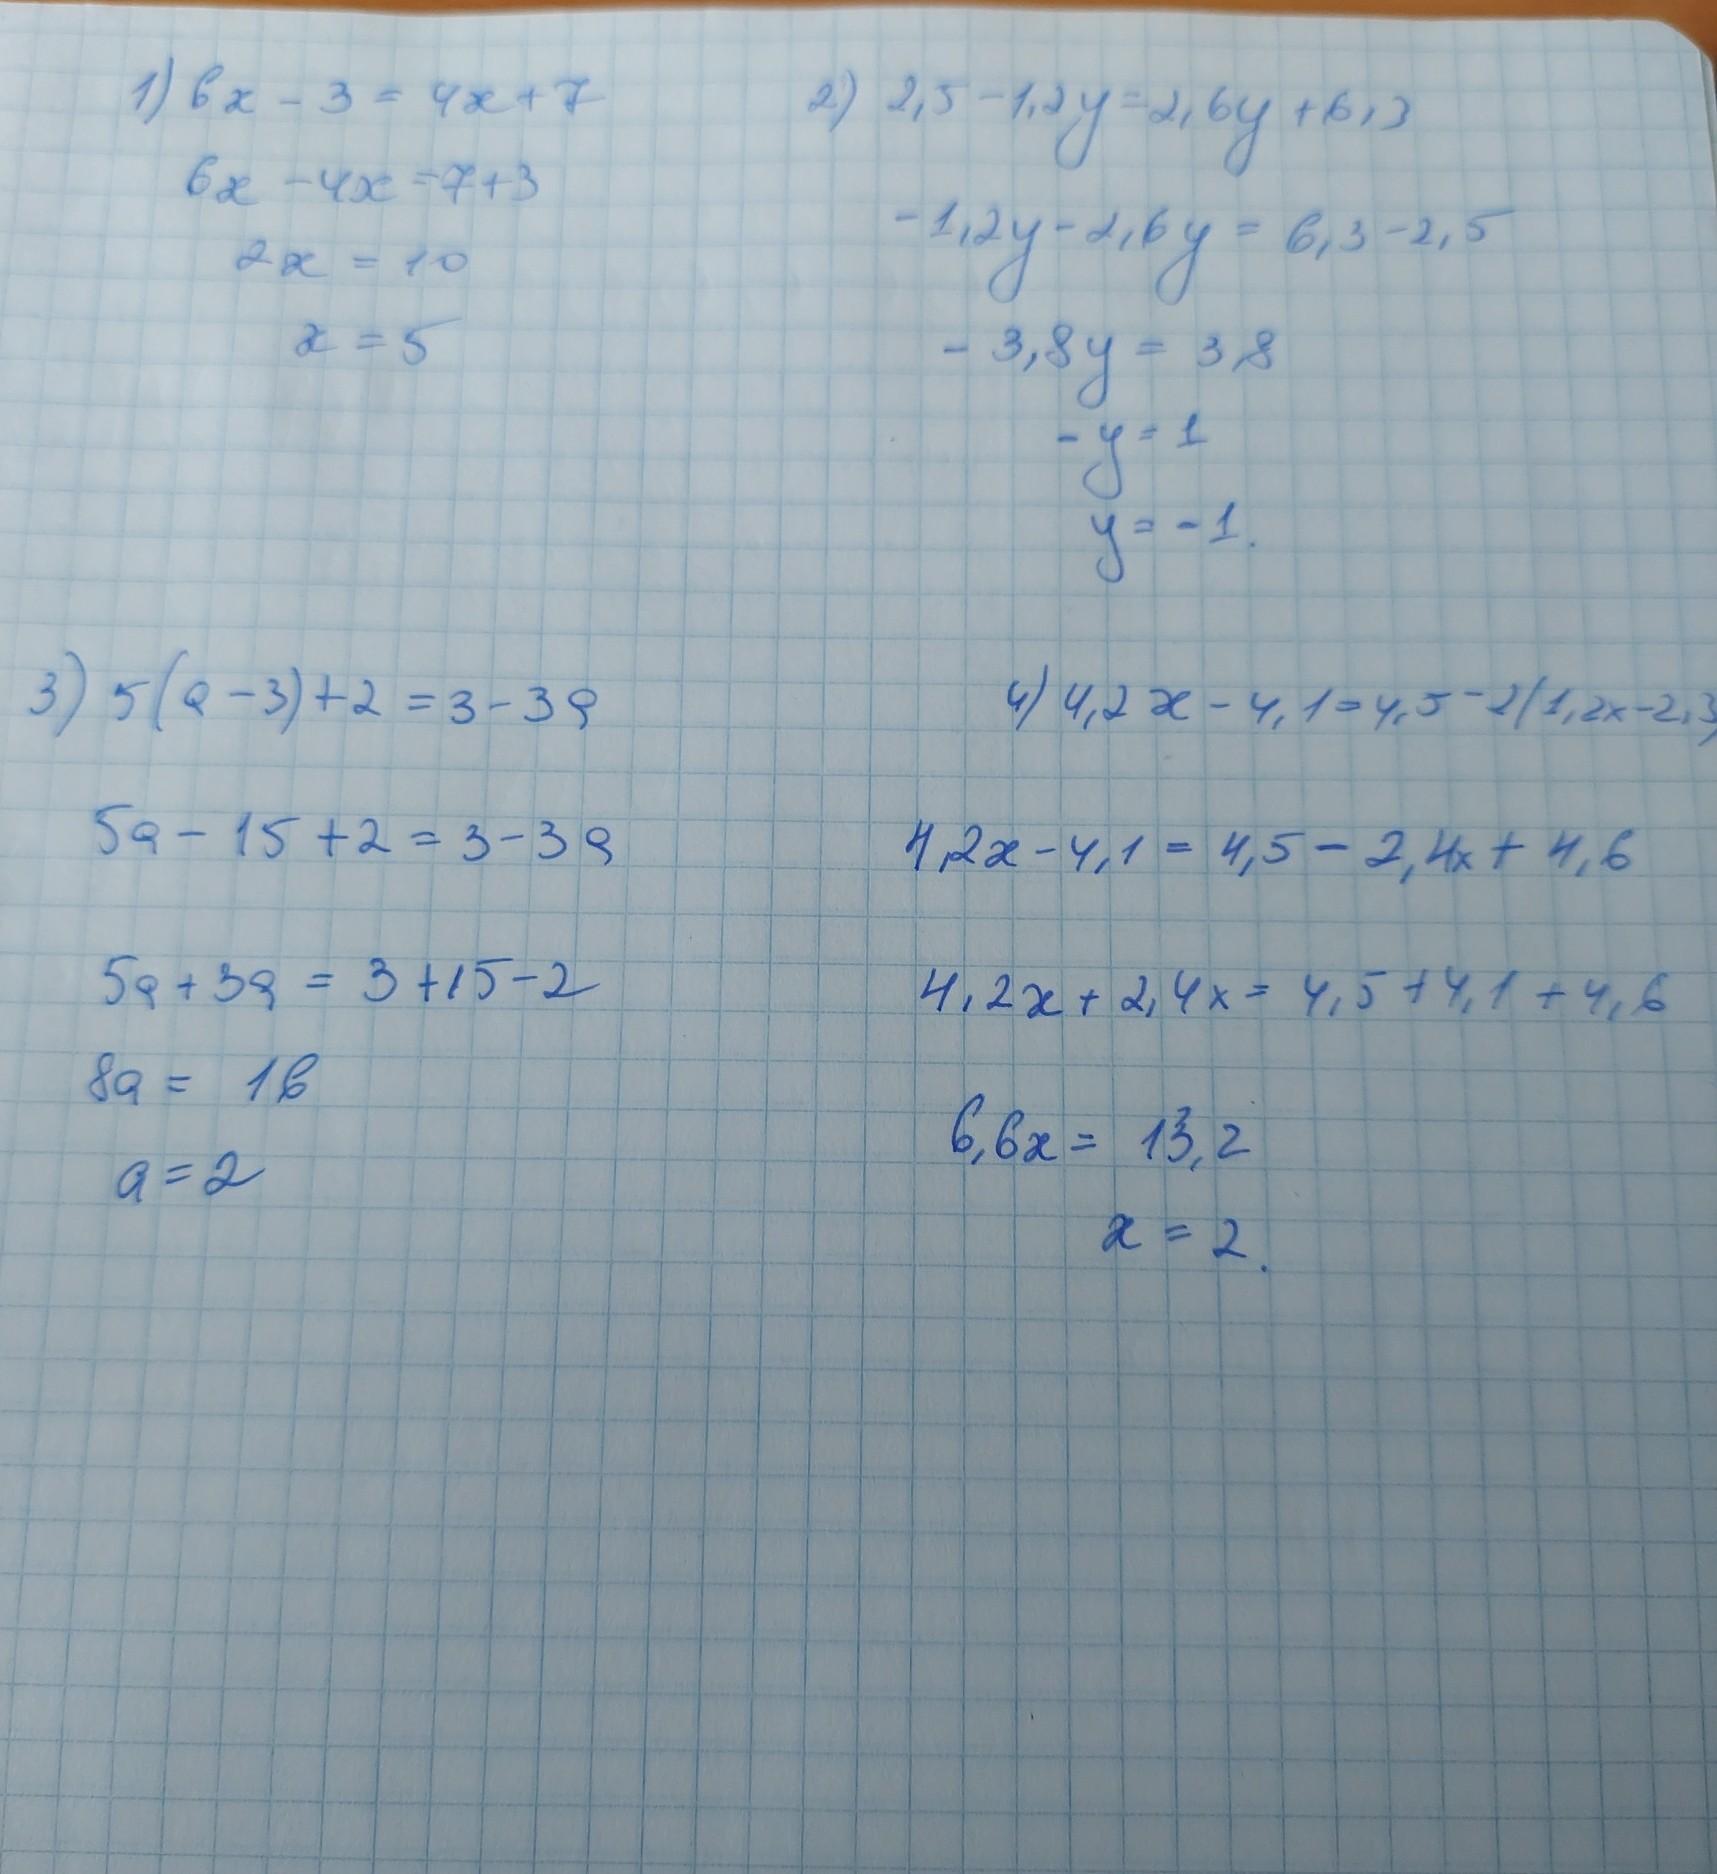 1) 6x - 3 = 4x + 7
6x - 4x = 7 + 3
2x = 10
x = 5
2) 2,5 - 1,2y = 2,6y + 6,3
- 1,2y - 2,6y = 6,3 - 2,5
- 3,8y = 3,8
- y = 1
y = - 1.
3) 5(a - 3) + 2 = 3 - 3a
5a - 15 + 2 = 3 - 3a
5a + 3a = 3 + 15 - 2
8a = 16
a = 2
4) 4,2x - 4,1 = 4,5 - 2(1,2x - 2,3)
4,2x - 4,1 = 4,5 - 2,4x + 4,6
4,2x + 2,4x = 4,5 + 4,1 + 4,6
6,6x = 13,2
x = 2.